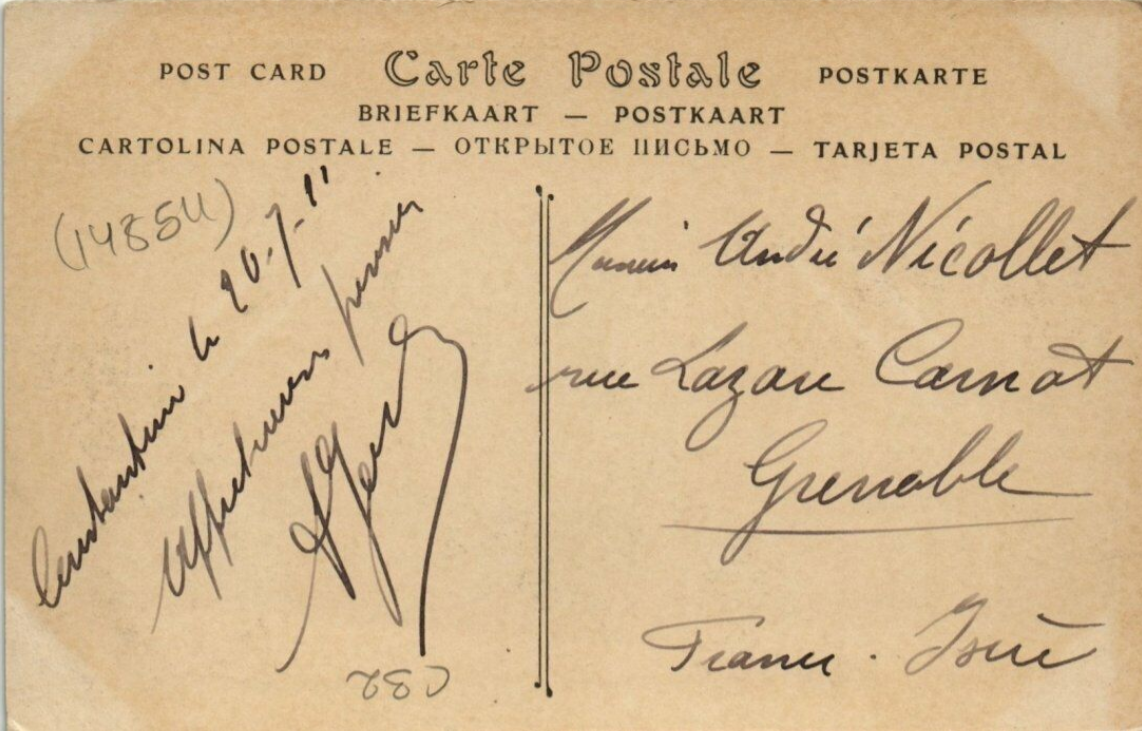 POST CARD Carte Postale POSTKARTE
BRIEFKAART — POSTKAART
CARTOLINA POSTALE — ОТКРЫТОЕ ПИСЬМО — TARJETA POSTAL
(14854)
Constantine le 20.7.11
Affectueuses pensées
André Nicollet
rue Lazare Carnot
Grenoble
France . Isère